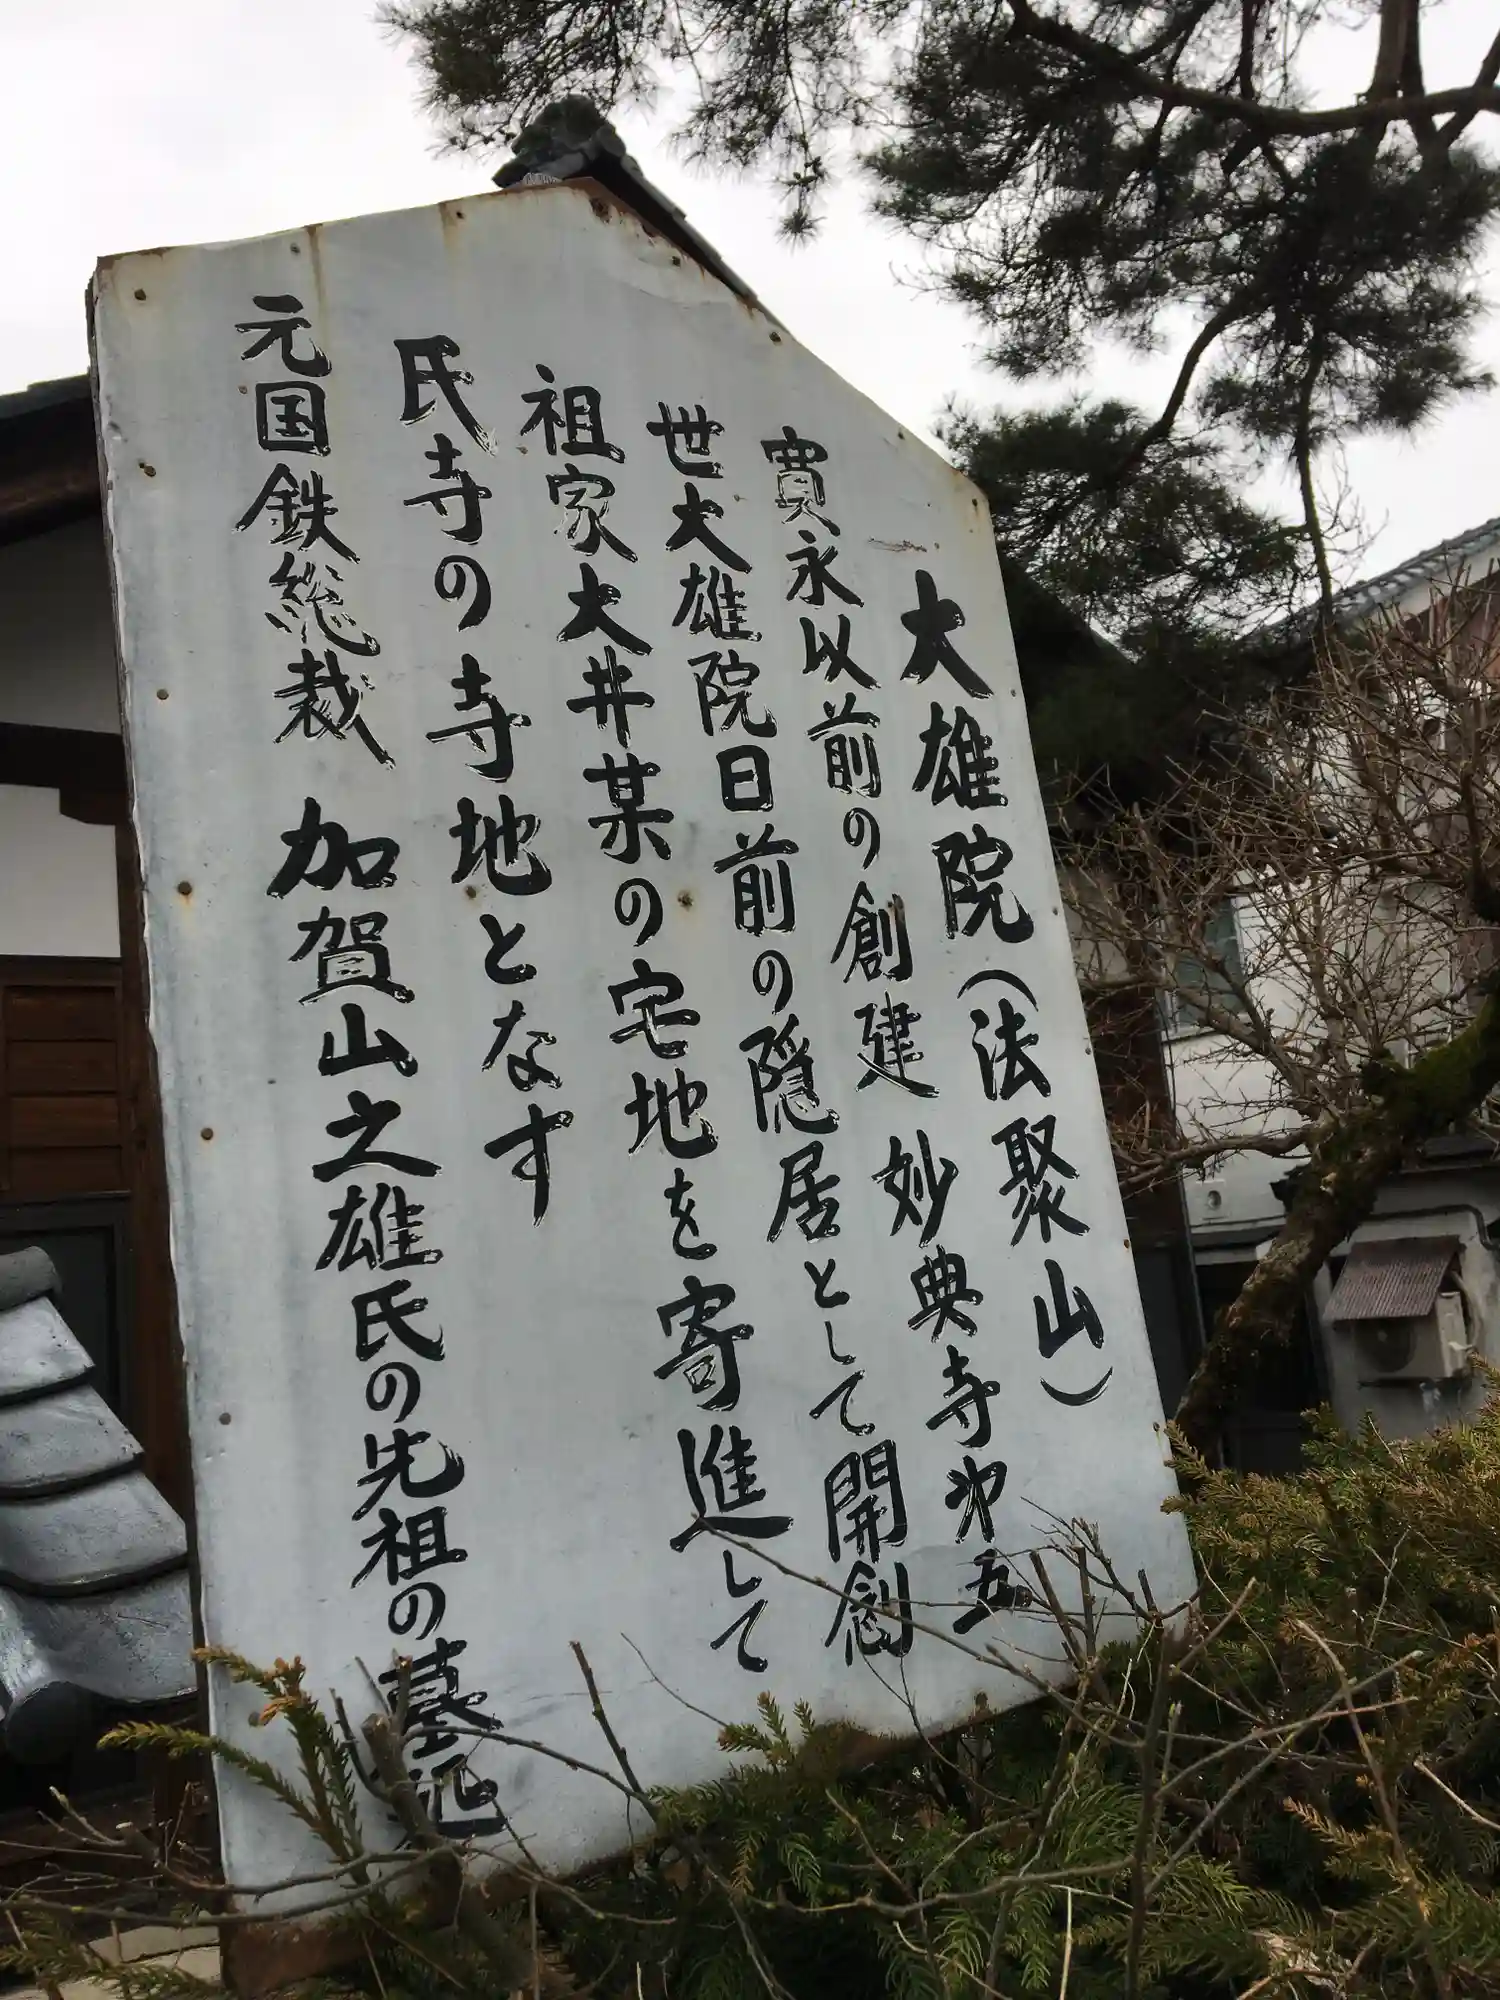 大雄院(法聚山)
寛永以前の創建 妙典寺第五
世大雄院日前の隠居として開創
祖家大井某の宅地を寄進して
氏寺の寺地となす
元国鉄総裁 加賀山之雄氏の先祖の墓